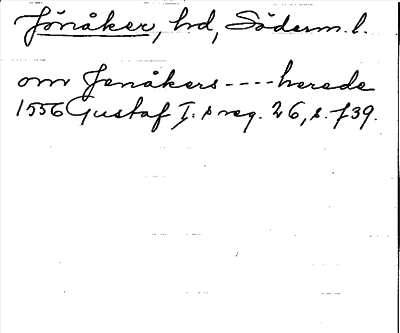 Jönåker, hd, Söderm. l.
om Jenåkers ---- herede
1556 Gustaf I:s reg. 26, s. 739.